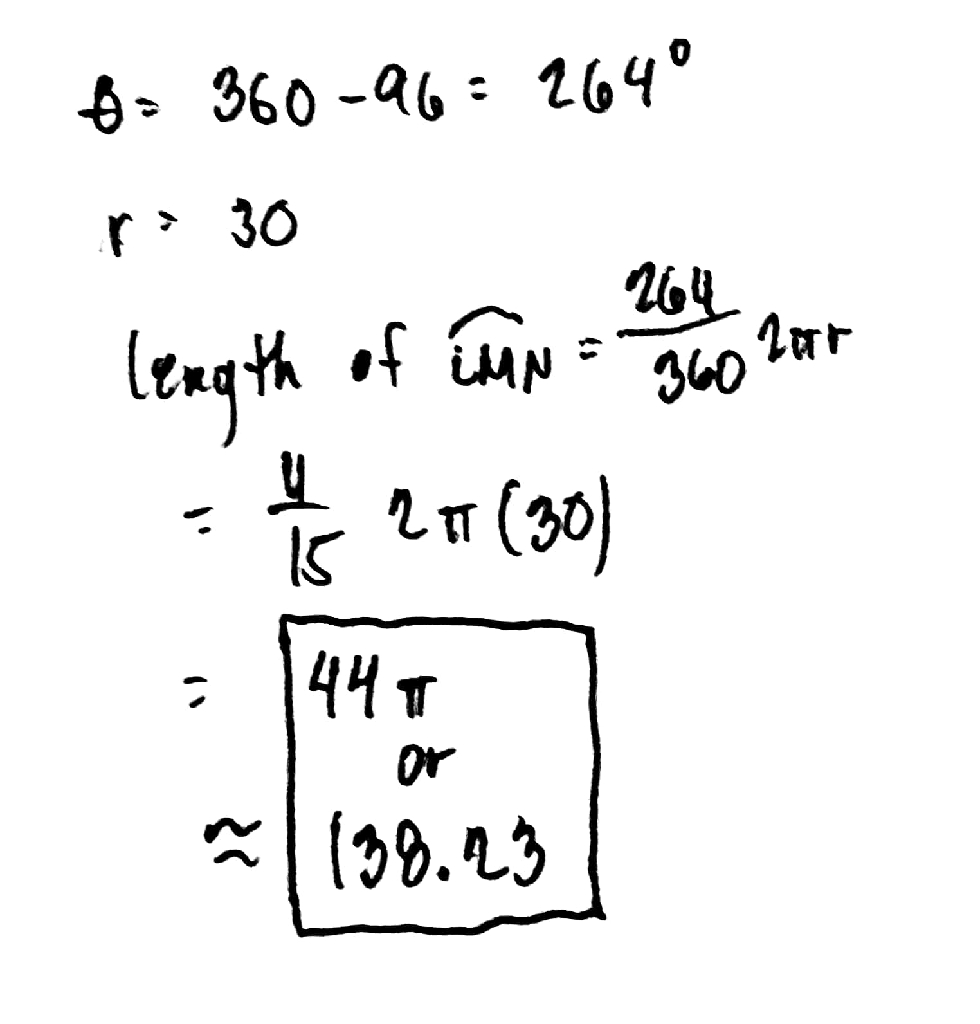 θ = 360 - 96 = 264°
r = 30
length of \overset{\frown}{LMN} = \frac{264}{360} 2πr
= \frac{4}{15} 2π (30)
= 44π
or
≈ 138.23